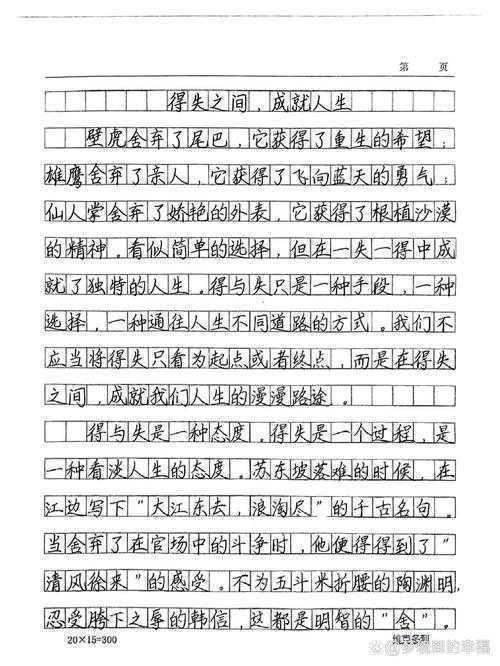 第 页
得失之间，成就人生
壁虎舍弃了尾巴，它获得了重生的希望；
雄鹰舍弃了亲人，它获得了飞向蓝天的勇气；
仙人掌舍弃了娇艳的外表，它获得了根植沙漠
的精神。看似简单的选择，但在一失一得中成
就了独特的人生。得与失只是一种手段，一种
选择，一种通往人生不同道路的方式。我们不
应当将得失只看为起点或者终点，而是在得失
之间，成就我们人生的漫漫路途。
得与失是一种态度。得失是一个过程，是
一种看淡人生的态度。苏东坡落难的时候，在
江边写下“大江东去，浪淘尽”的千古名句。
当舍弃了在官场中的斗争时，他便得得到了“
清风徐来”的感受。不为五斗米折腰的陶渊明，
忍受胯下之辱的韩信，这都是明智的“舍”。
20×15=300
的幸福